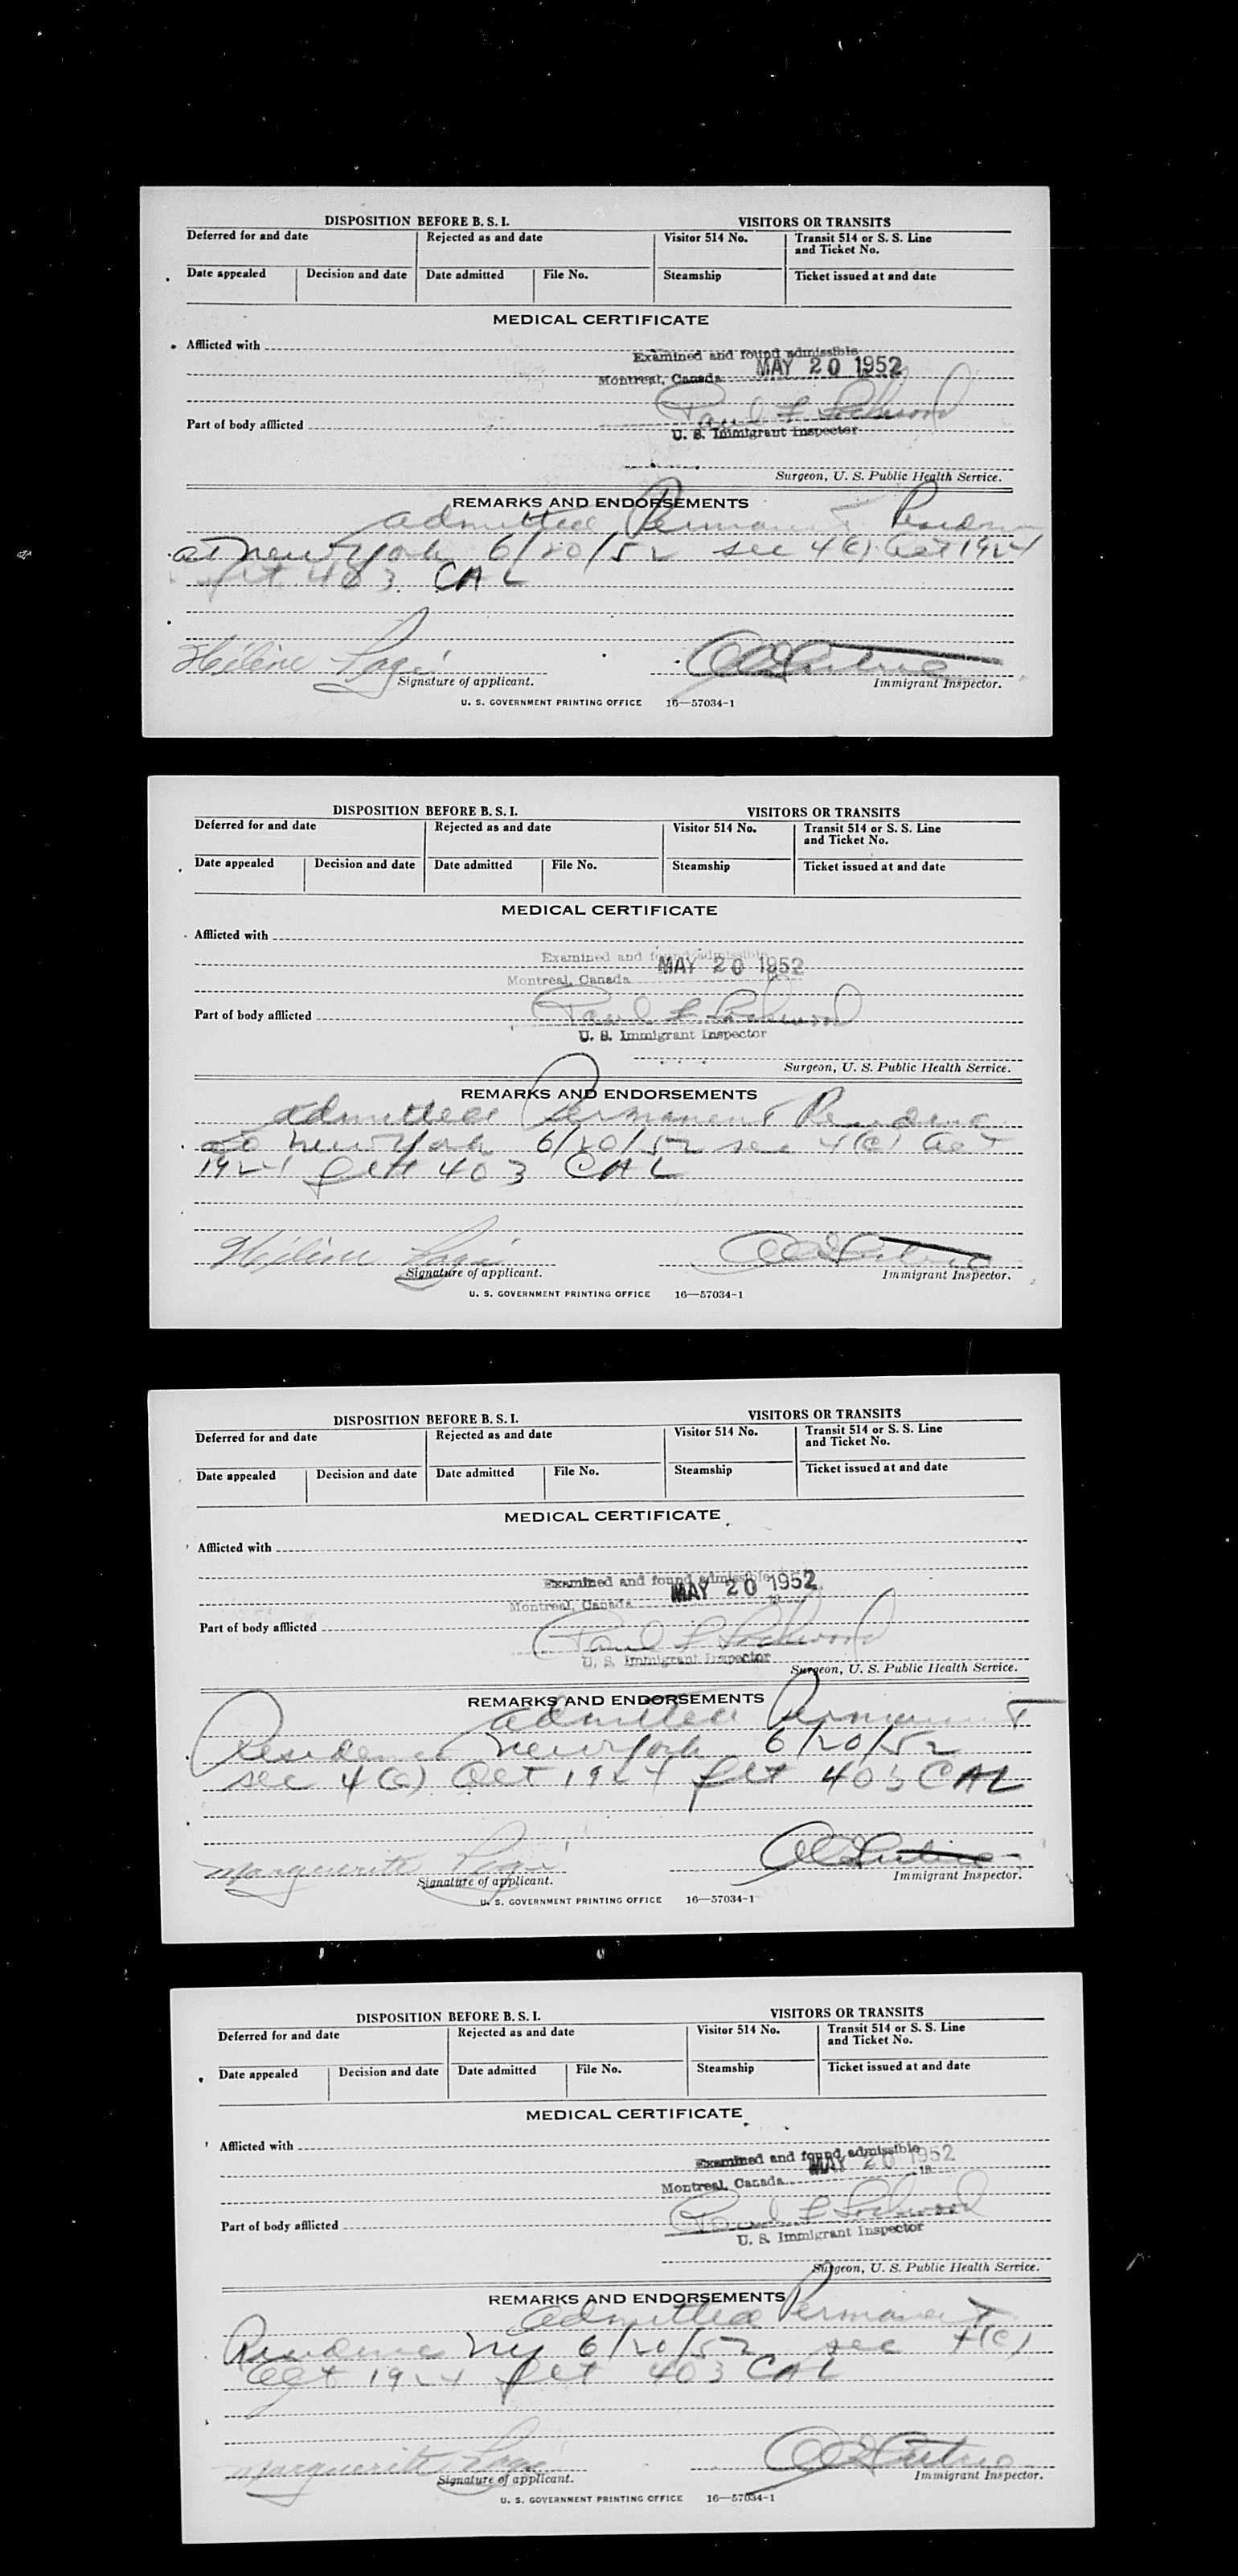 DISPOSITION BEFORE B. S. I.
VISITORS OR TRANSITS
Deferred for and date
Rejected as and date
Visitor 514 No.
Transit 514 or S. S. Line
and Ticket No.
Date appealed
Decision and date
Date admitted
File No.
Steamship
Ticket issued at and date
MEDICAL CERTIFICATE
Afflicted with
Examined and found admissible
MAY 20 1952
Montreal, Canada
Paul F. Lockwood
U. S. Immigrant Inspector
Part of body afflicted
Surgeon, U. S. Public Health Service.
REMARKS AND ENDORSEMENTS
admitted Permanent
at New York 6/20/52 sec 4(c) Act 1924
flt 403 CAL
Hélène
Signature of applicant.
Immigrant Inspector.
U. S. GOVERNMENT PRINTING OFFICE 16—57034-1
DISPOSITION BEFORE B. S. I.
VISITORS OR TRANSITS
Deferred for and date
Rejected as and date
Visitor 514 No.
Transit 514 or S. S. Line
and Ticket No.
Date appealed
Decision and date
Date admitted
File No.
Steamship
Ticket issued at and date
MEDICAL CERTIFICATE
Afflicted with
Examined and found admissible
MAY 20 1952
Montreal, Canada
Paul F. Lockwood
U. S. Immigrant Inspector
Part of body afflicted
Surgeon, U. S. Public Health Service.
REMARKS AND ENDORSEMENTS
admitted Permanent Residence
New York 6/20/52 sec 4(c) Act
1924 flt 403 CAL
Hélène
Signature of applicant.
Immigrant Inspector.
U. S. GOVERNMENT PRINTING OFFICE 16—57034-1
DISPOSITION BEFORE B. S. I.
VISITORS OR TRANSITS
Deferred for and date
Rejected as and date
Visitor 514 No.
Transit 514 or S. S. Line
and Ticket No.
Date appealed
Decision and date
Date admitted
File No.
Steamship
Ticket issued at and date
MEDICAL CERTIFICATE
Afflicted with
Examined and found admissible
MAY 20 1952
Montreal, Canada
19
Paul F. Lockwood
U. S. Immigrant Inspector
Part of body afflicted
Surgeon, U. S. Public Health Service.
REMARKS AND ENDORSEMENTS
admitted Permanent
Residence New York 6/20/52
sec 4(c) Act 1924 flt 403 CAL
Marguerite
Signature of applicant.
Immigrant Inspector.
U. S. GOVERNMENT PRINTING OFFICE 16—57034-1
DISPOSITION BEFORE B. S. I.
VISITORS OR TRANSITS
Deferred for and date
Rejected as and date
Visitor 514 No.
Transit 514 or S. S. Line
and Ticket No.
Date appealed
Decision and date
Date admitted
File No.
Steamship
Ticket issued at and date
MEDICAL CERTIFICATE
Afflicted with
Examined and found admissible
MAY 20 1952
Montreal, Canada
19
Paul F. Lockwood
U. S. Immigrant Inspector
Part of body afflicted
Surgeon, U. S. Public Health Service.
REMARKS AND ENDORSEMENTS
admitted Permanent
Residence NY 6/20/52 sec 4(c)
Act 1924 flt 403 CAL
Marguerite
Signature of applicant.
Immigrant Inspector.
U. S. GOVERNMENT PRINTING OFFICE 16—57034-1